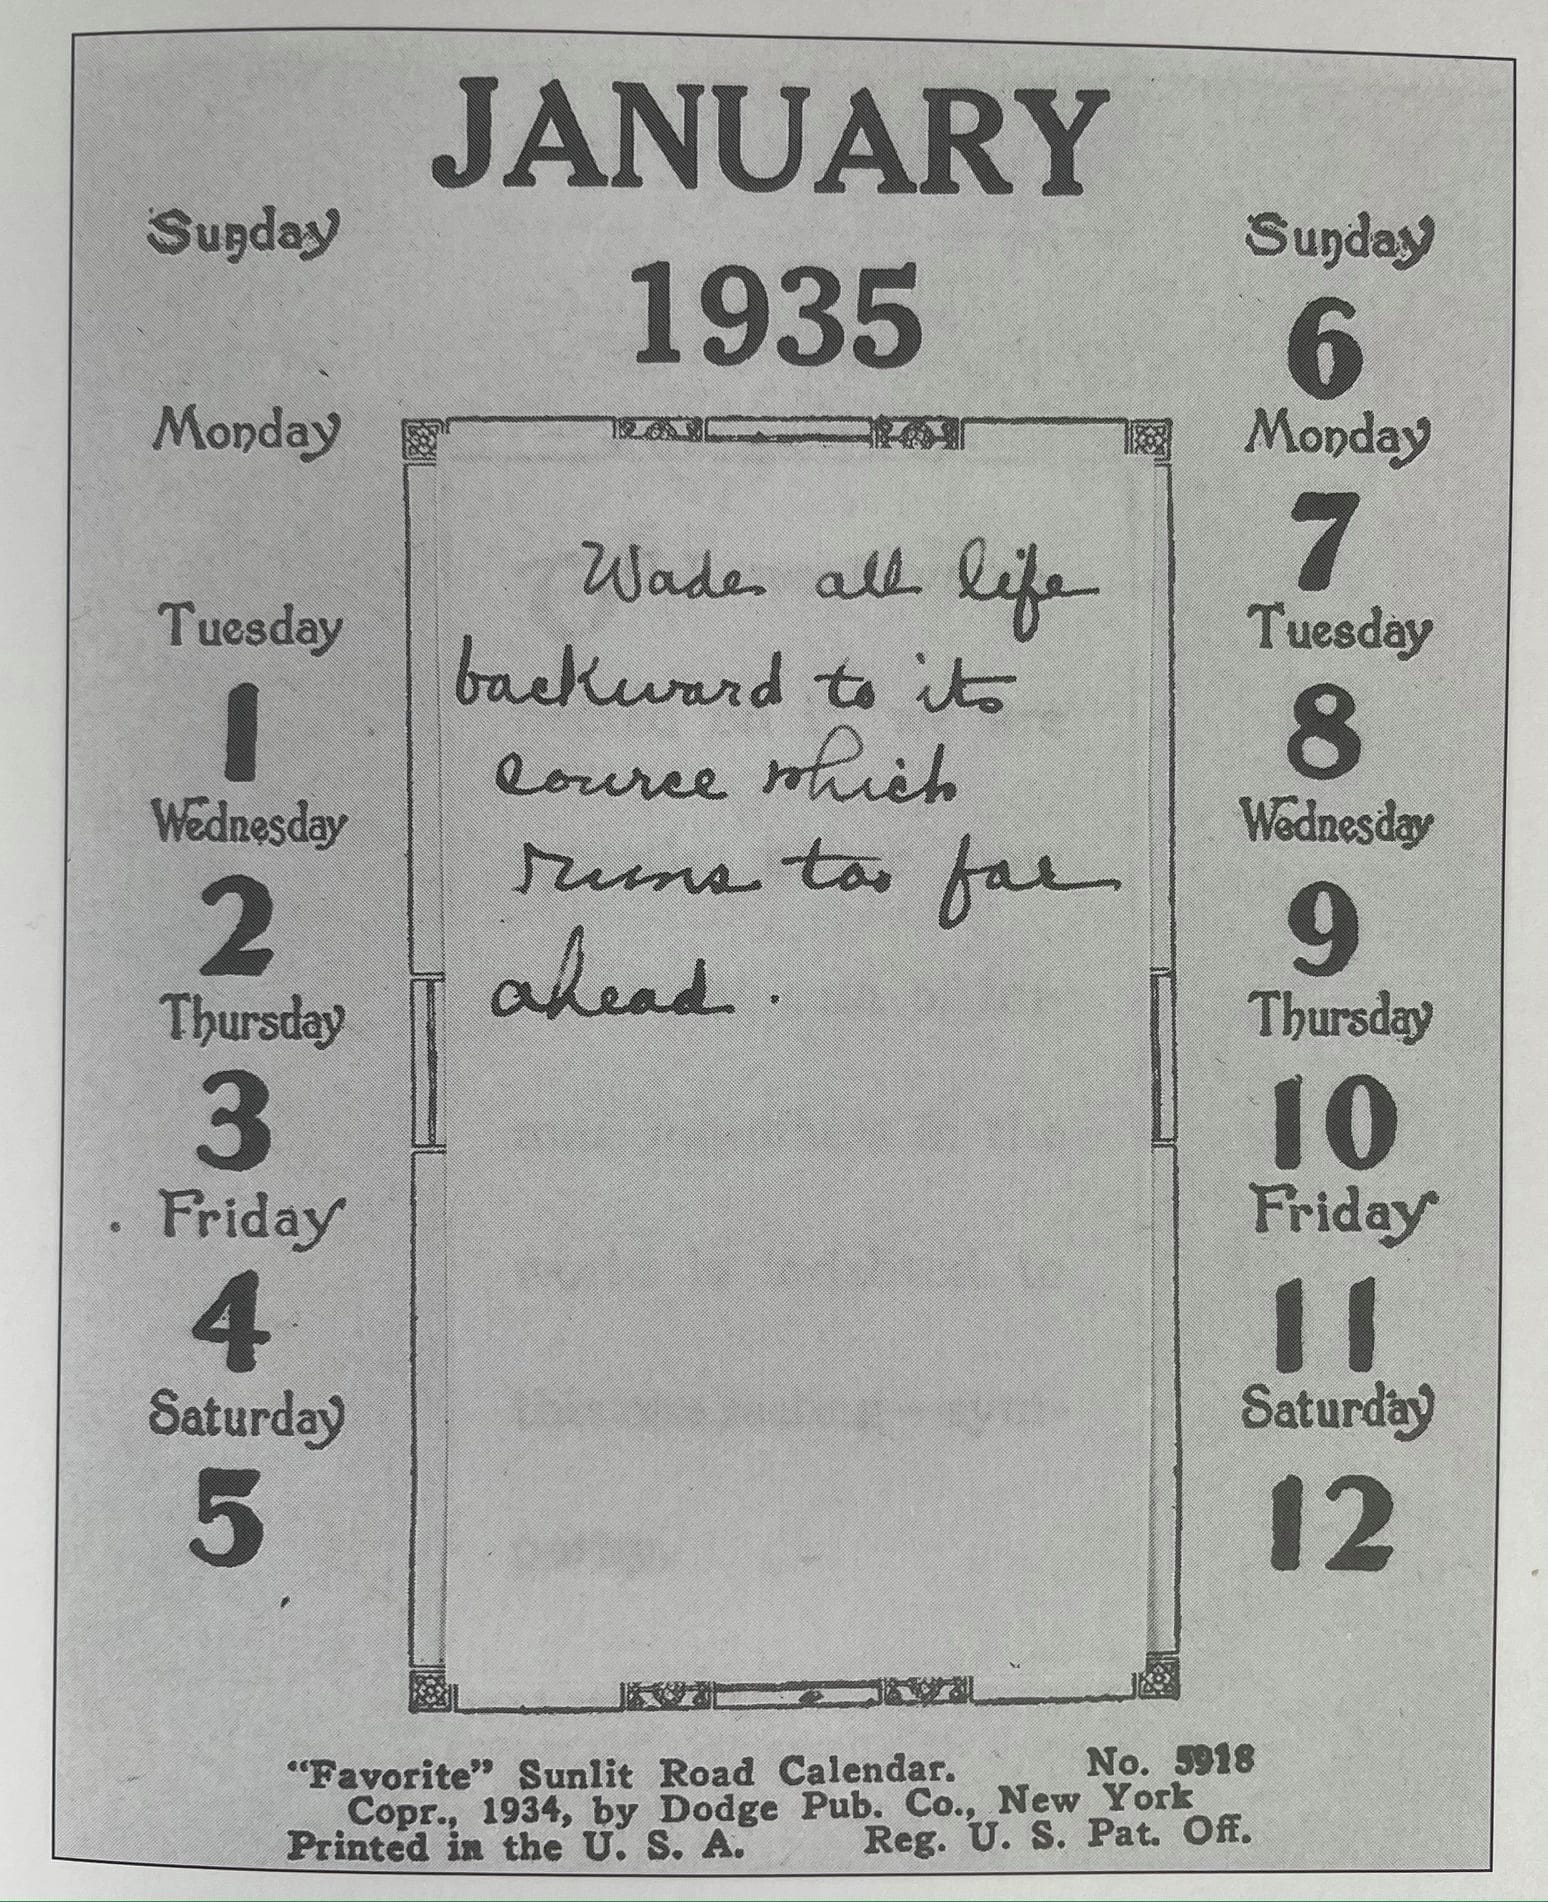 JANUARY
1935
Sunday
Monday
Tuesday
1
Wednesday
2
Thursday
3
Friday
4
Saturday
5
Wade all life
backward to its
source which
runs too far
ahead.
Sunday
6
Monday
7
Tuesday
8
Wednesday
9
Thursday
10
Friday
11
Saturday
12
"Favorite" Sunlit Road Calendar. No. 5918
Copr., 1934, by Dodge Pub. Co., New York
Printed in the U. S. A. Reg. U. S. Pat. Off.